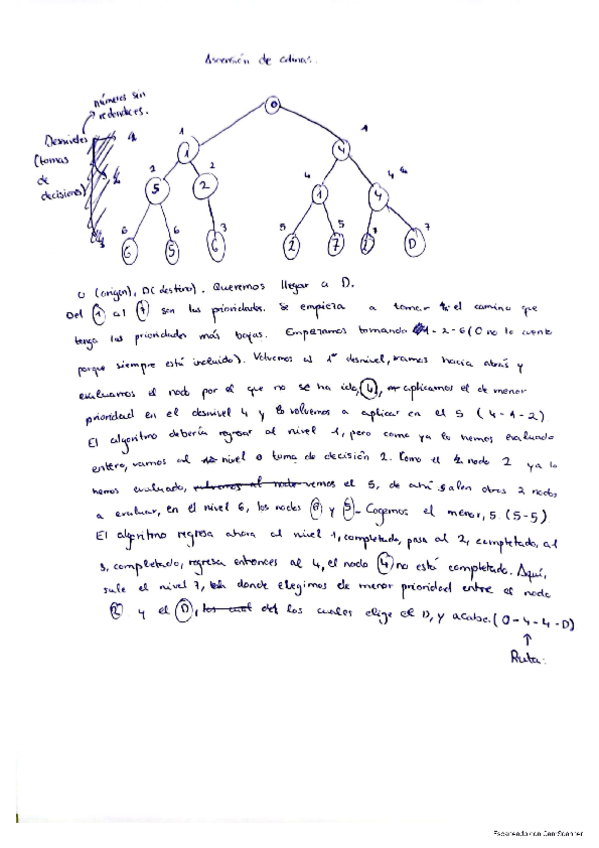 Ascensión de colinas.
números sin
redondeles.
Desniveles
(tomas
de
decisiones)
0
1
1
1
4
2
2
4
4
5
2
1
4
6
6
3
5
5
3
7
6
5
6
2
7
2
D
O (origen), D (destino). Queremos llegar a D.
Del 1 al 7 son las prioridades. Se empieza a tomar el camino que
tenga las prioridades más bajas. Empezamos tomando 1-2-6 (O no lo cuento
porque siempre está incluido). Volvemos al 1er desnivel, vamos hacia atrás y
evaluamos el nodo por el que no se ha ido, 4, aplicamos el de menor
prioridad en el desnivel 4 y lo volvemos a aplicar en el 5 (4-1-2)
El algoritmo debería regresar al nivel 1, pero como ya lo hemos evaluado
entero, vamos al nivel o toma de decisión 2. Como el nodo 2 ya lo
hemos evaluado, vemos el 5, de ahí salen otros 2 nodos
a evaluar, en el nivel 6, los nodos 6 y 5. Cogemos el menor, 5. (5-5)
El algoritmo regresa ahora al nivel 1, completado, pasa al 2, completado, al
3, completado, regresa entonces al 4, el nodo 4 no está completado. Aquí,
sale el nivel 7, donde elegimos de menor prioridad entre el nodo
2 y el D, los cuales elige el D, y acaba. (O-4-4-D)
↑
Ruta:
Escaneado con CamScanner